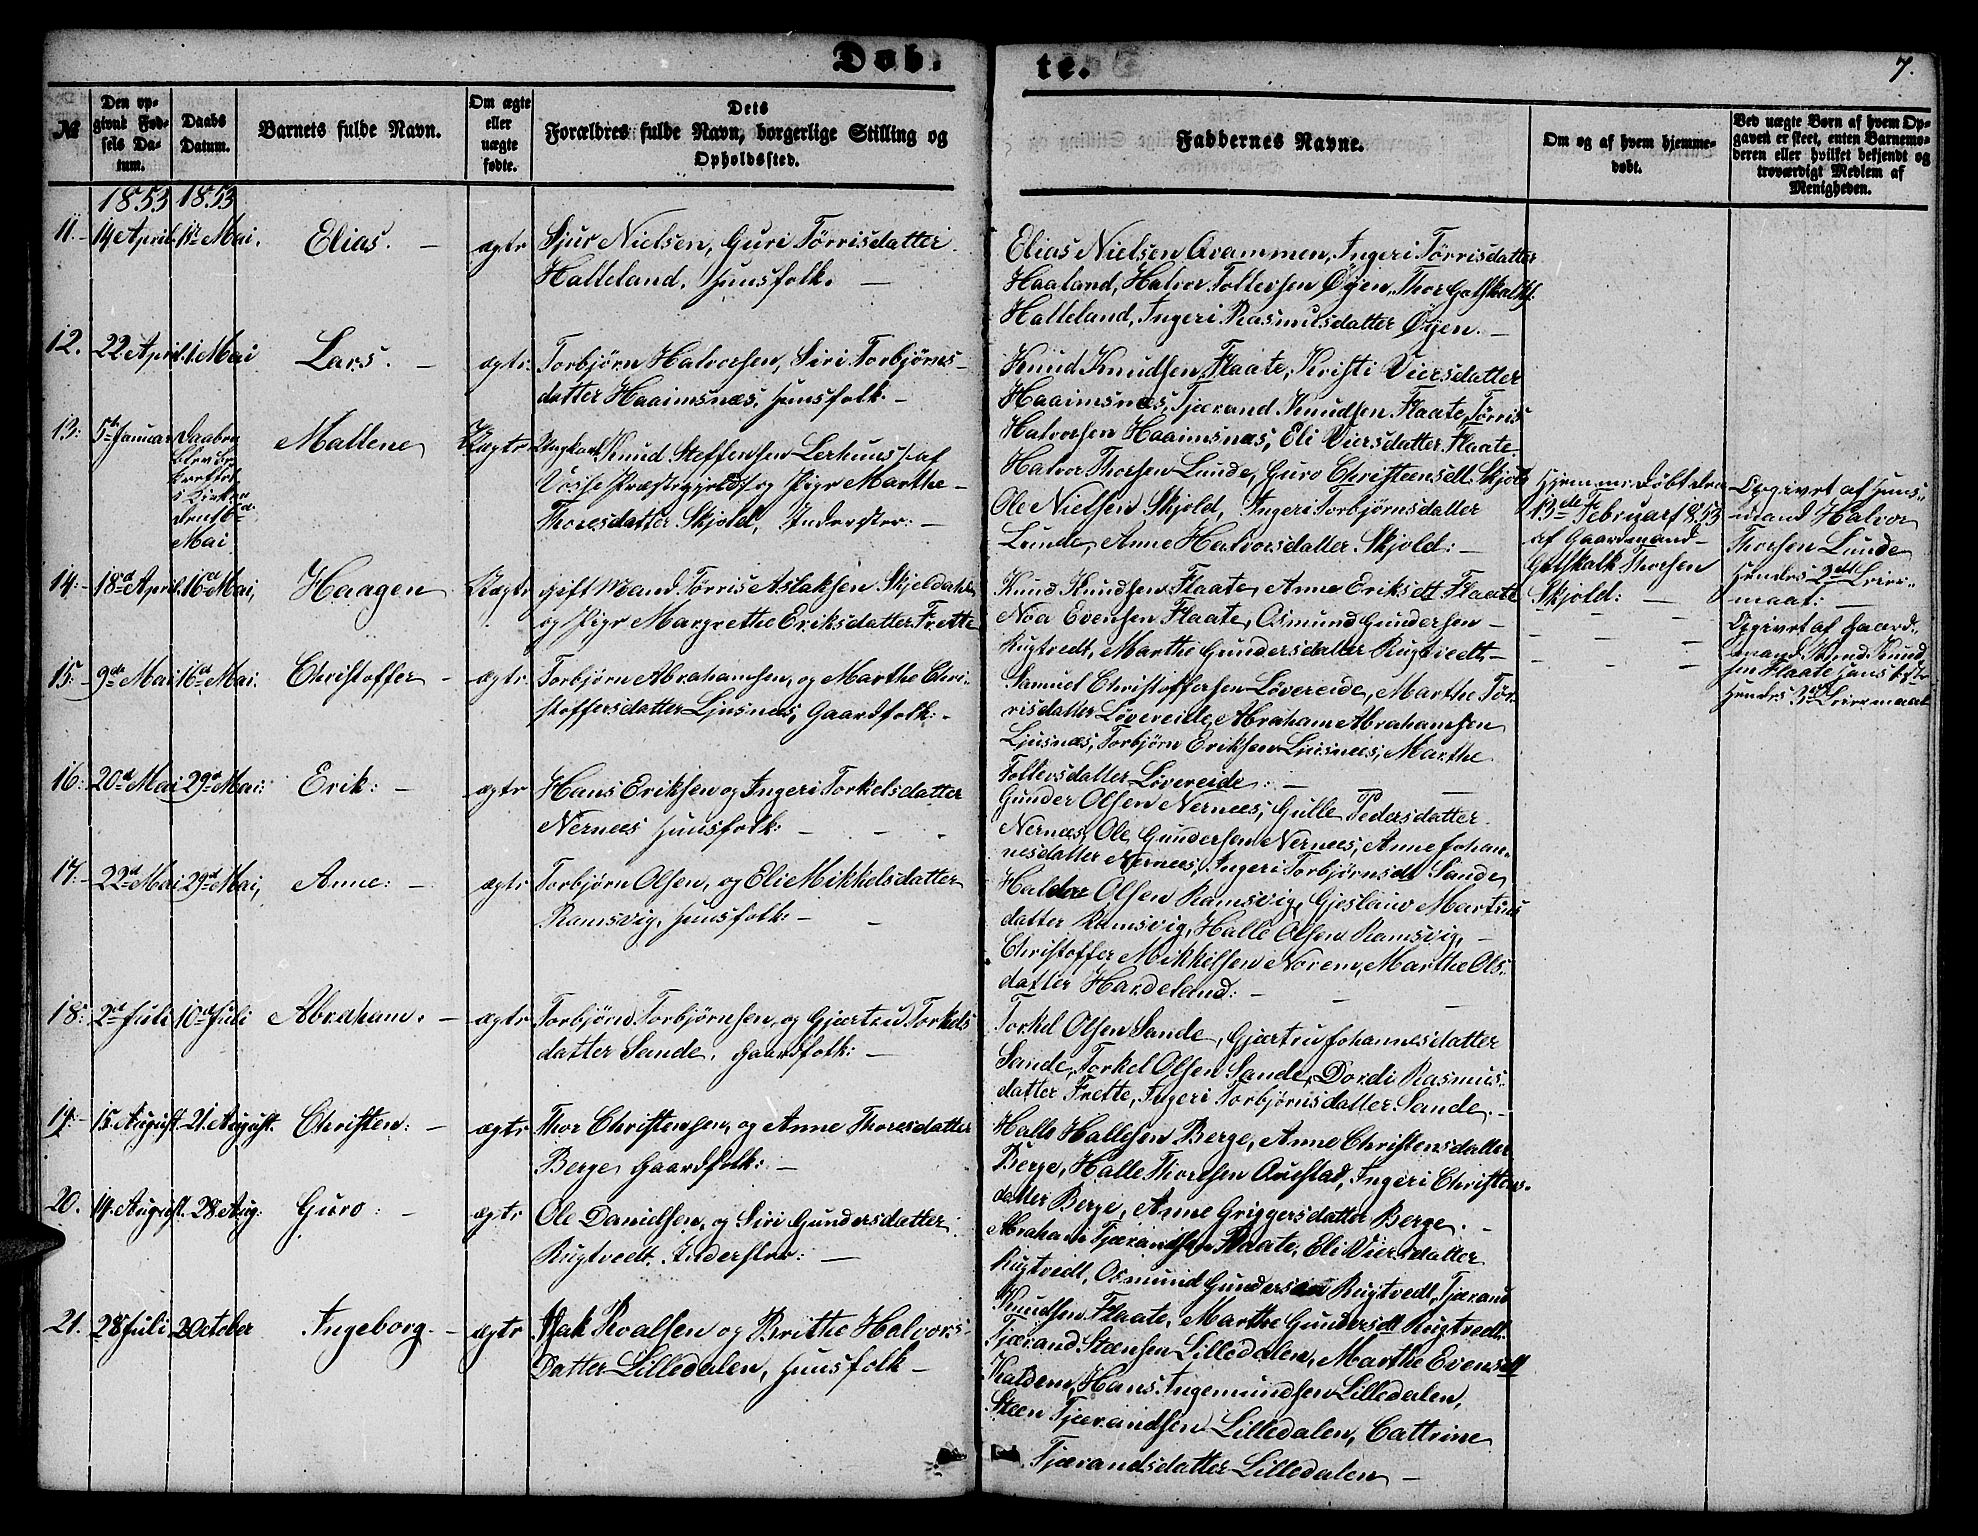 Døb-
te.
7.
№
Den op-
givne Fød-
sels Da-
tum.
Daabs
Datum.
Barnets fulde Navn.
Om ægte
eller
uægte
fødte.
Dets
Forældres fulde Navn, borgerlige Stilling og
Opholdssted.
Faddernes Navne.
Om og af hvem hjemme-
døbt.
Ved uægte Børn af hvem Op-
gaven er skeet, enten Barnemo-
deren eller hvilket bekjendt og
troværdigt Medlem af
Menigheden.
1853 1853
11. 14 April. 1ste Mai. Elias. — ægte Sjur Nielsen, Guri Tørrisdatter
Halleland. Huusfolk. —
Elias Nielsen Qvammen, Ingeri Tørrisdatter
Haaland, Halvor Tollevsen Øyen, Thor Gotskalks.
Halleland, Ingeri Rasmusdatter Øyen. —
12. 22 April. 1 Mai Lars. — ægte: Torbjørn Halvorsen, Siri Torbjørns-
datter Haaimsnæs, Huusfolk. —
Knud Knudsen Flaate, Kristi Viersdatter
Haaimsnæs, Tjærand Knudsen Flaate, Tørris
Halvorsen Haaimsnæs, Eli Viersdatter Flaate.
13: 5te Januar Daaben
blev be-
kræftet
i Kirken
den 16de
Mai
Mallene Uægte Ungkarl Knud Steffensen Lerhuus af
Vosse Præstegjeld og Pige Marthe
Thoresdatter Skjold, Inderster: —
Halvor Thorsen Lunde, Guro Christensdtt. Skjold
Ole Nielsen Skjold, Ingeri Torbjørnsdatter
Lunde, Anne Halvorsdatter Skjold: —
Hjemme-Døbt den
13de Februar 1853
af Gaardmand
Gotskalk Thorsen
Skjold: —
Opgivet af Huus-
mand Halvor
Thorsen Lunde
Hendes 2det Leier-
maal: —
14: 18de April 16de Mai, Haagen Uægte gift Mand Tørris Aslaksen Skjeldahl
og Pige Margrethe Eriksdatter Frette
Knud Knudsen Flaate, Anne Eriksdtt Flaate
Noa Evensen Flaate, Osmund Gundersen
Rugtvedt, Marthe Gundersdatter Rugtvedt, —
Opgivet af Gaard-
mand Knud Knud-
sen Flaate hans 1ste
Hendes 3die Leiermaal
15: 9de Mai 16de Mai. Christoffer — ægte. Torbjørn Abrahamsen, og Marthe Chri-
stoffersdatter Ljusnæs, Gaardfolk: -
Samuel Christoffersen Løvereide, Marthe Tør-
risdatter Løvereide, Abraham Abrahamsen
Ljusnæs, Torbjørn Eriksen Ljusnæs, Marthe
Tollevsdatter Løvereide: —
16: 20de Mai 29de Mai: Erik: — ægte Hans Eriksen og Ingeri Torkelsdatter
Nernæs Huusfolk: —
Gunder Olsen Nernæs, Gulle Pedersdatter
Nernæs, Ole Gundersen Nernæs, Anne Johan-
nesdatter Nernæs, Ingeri Torbjørnsdt Sande
17: 22de Mai 29de Mai, Anne: — ægte Torbjørn Olsen, og Eli Mikkelsdatter
Ramsvig, Huusfolk —
Haldor Olsen Ramsvig, Martines
datter Ramsvig, Halle Olsen Ramsvig, —
Christoffer Mikkelsen Norem, Marthe Ols-
datter Hardeland: —
18: 2de Juli 10de Juli Abraham. — ægte Torbjørn Torbjørnsen, og Gjærtru Torkels
datter Sande, Gaardfolk: —
Torkel Olsen Sande, Gjærtru Johannesdatter
Sande, Torkel Olsen Sande, Dordi Rasmus-
datter Frette, Ingeri Torbjørnsdatter Sande. —
19: 15. August. 21. August. Christen: — ægte Thor Christensen, og Anne Thoresdatter
Berge, Gaardfolk: —
Halle Hallesen Berge, Anne Christensdatter
Berge, Halle Thorsen Austad, Ingeri Christens-
datter Berge, Anne Griggersdatter Berge. —
20. 14. August. 28 Aug: Guro: — ægte Ole Danielsen, og Siri Gundersdatter
Rugtvedt. Inderster: —
Abraham Tjærandsen Flaate, Eli Viersdatter
Rugtvedt, Osmund Gundersen Rugtvedt, Tjærand
Knudsen Flaate, Marthe Gundersdt Rugtvedt.
21. 28 Juli 2 October Ingeborg. — ægte Isak Roalsen og Brithe Halvors-
Datter Lilledalen, Huusfolk —
Tjærand Steensen Lilledalen, Marthe Evensdtt
Kaldem, Hans Ingemundsen Lilledalen,
Steen Tjærandsen Lilledalen, Cattrine
Tjærandsdatter Lilledalen —